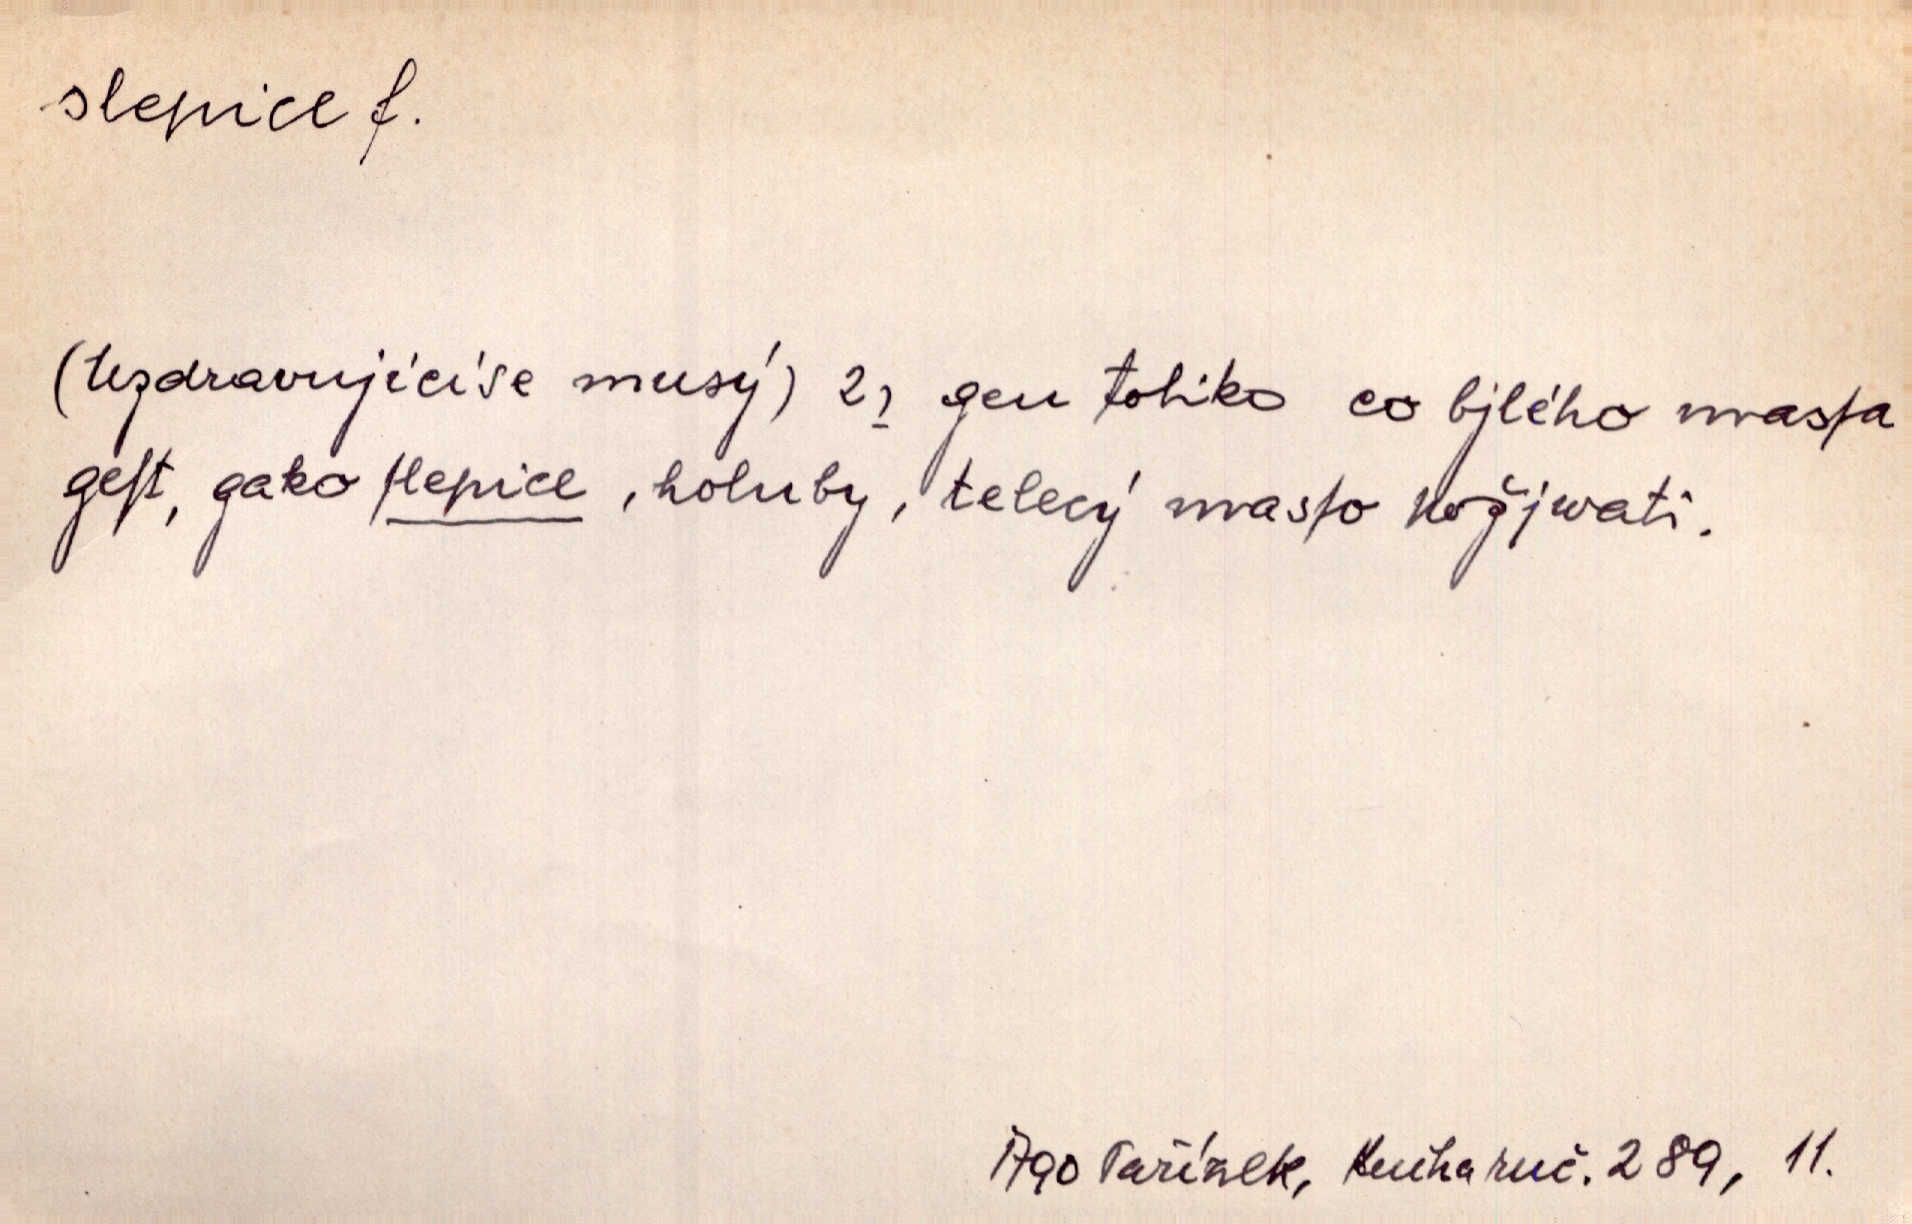 slepice f.
(Uzdravujícíse musý) 2) gen toliko co bjlého massa
geſt, gako ſlepice, holuby, telecý masso požjwati.
1790 Pařízek, Kniha ruč. 289, 11.